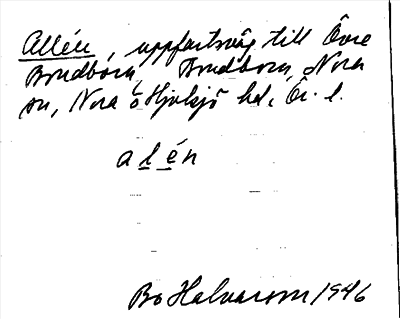 Allén, uppfartsväg till Övre
Bondborn, Bondborn, Nora
sn, Nora o Hjulsjö hd, Ör. l.
alén
Bo Halvarson 1946